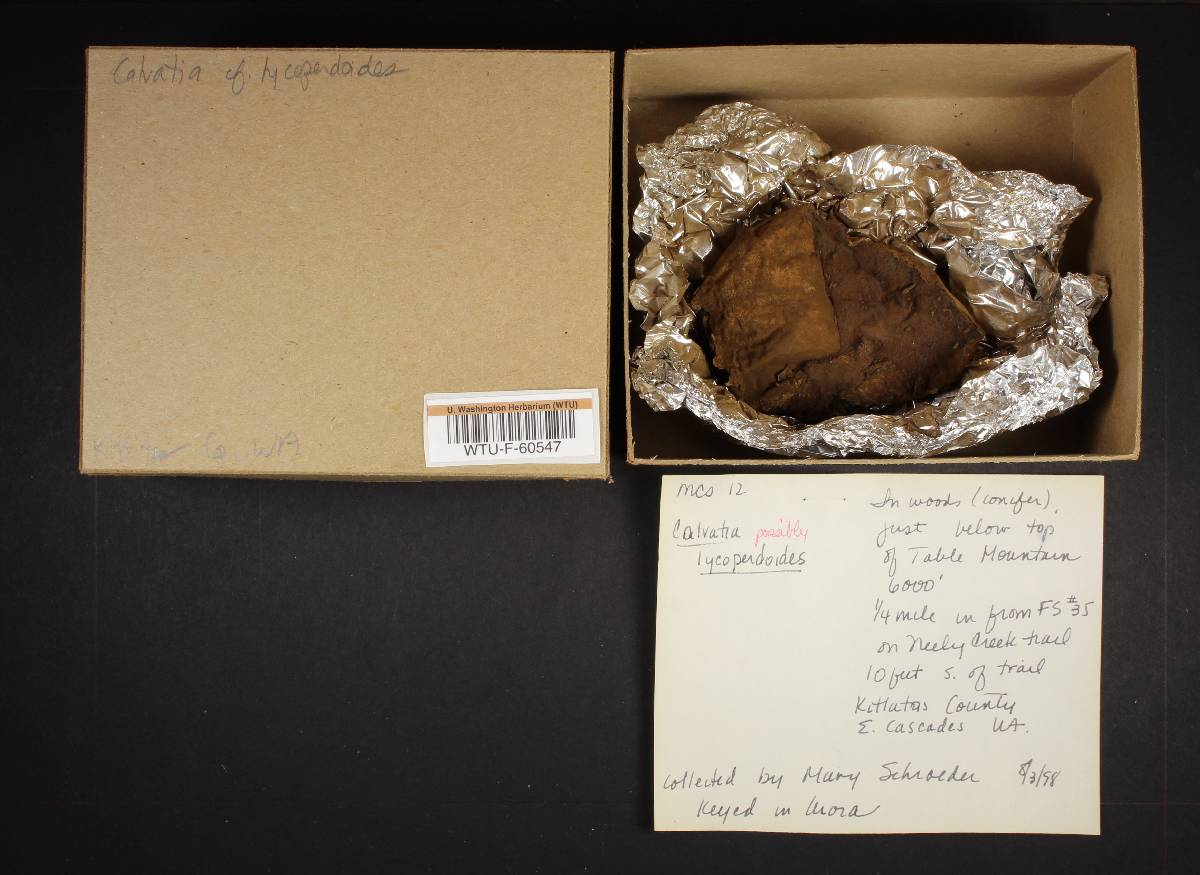 Calvatia cf. lycoperdoides
Co. WA
U. Washington Herbarium (WTU)
WTU-F-60547
MCS 12
Calvatia possibly
lycoperdoides
In woods (conifer),
just below top
of Table Mountain
6000'
1/4 mile in from FS #35
on Neely Creek trail
10 feet s. of trail
Kittutas County
E. Cascades WA.
collected by Mary Schroeder 8/3/98
Keyed in Arora